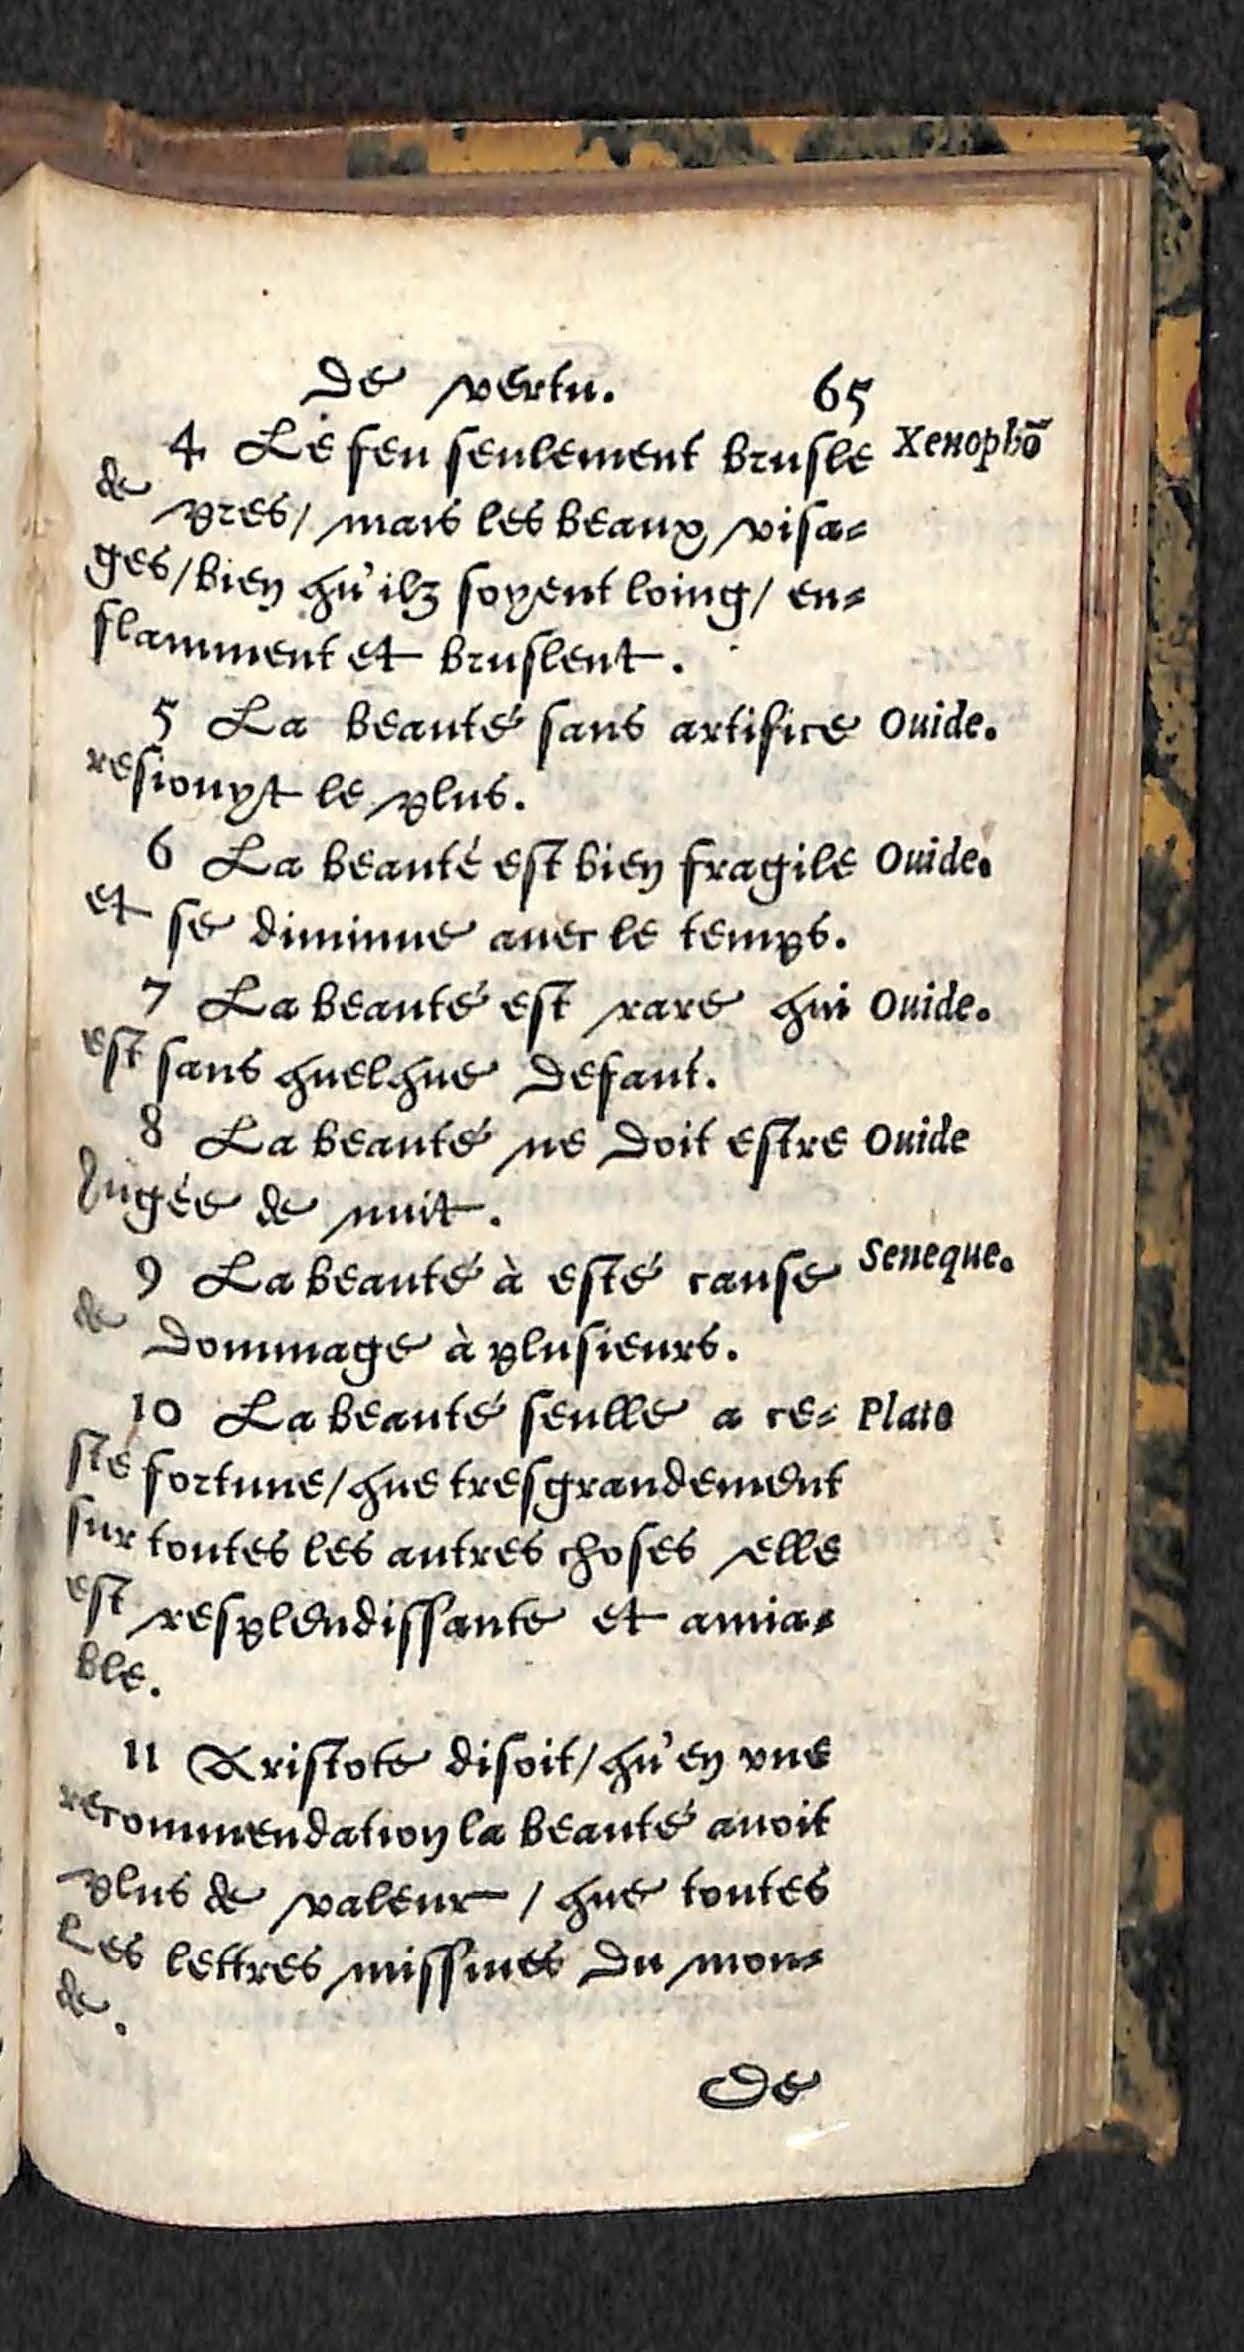 de vertu. 65
4 Le feu seulement brusle Xenophõ
de pres/ mais les beaux visa-
ges/ bien qu'ilz soyent loing/ en-
flamment et bruslent.
5 La beauté sans artifice Ouide.
resiouyt le plus.
6 La beauté est bien fragile Ouide.
et se diminue auec le temps.
7 La beauté est rare qui Ouide.
est sans quelque defaut.
8 La beauté ne doit estre Ouide
Iugée de nuit.
9 La beauté à esté cause Seneque.
de dommage à plusieurs.
10 La beauté seulle a ce- Plato
ste fortune/ que tresgrandement
sur toutes les autres choses elle
est resplendissante et amia-
ble.
11 Aristote disoit/ qu'en vne
recommendation la beauté auoit
plus de valeur/ que toutes
les lettres missiues du mon-
de.
De